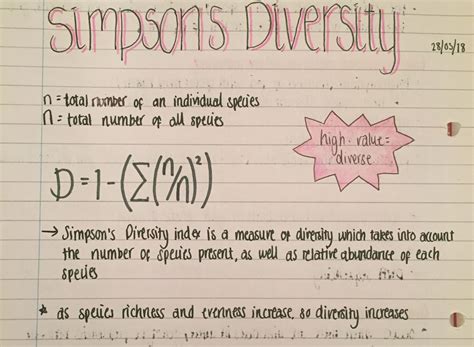 Simpson's Diversity
28/03/18
n = total number of an individual species
N = total number of all species
high value =
diverse
D = 1 - (Σ(n/N)²)
→ Simpson's Diversity index is a measure of diversity which takes into account
the number of species present, as well as relative abundance of each
species
* as species richness and evenness increase, so diversity increases